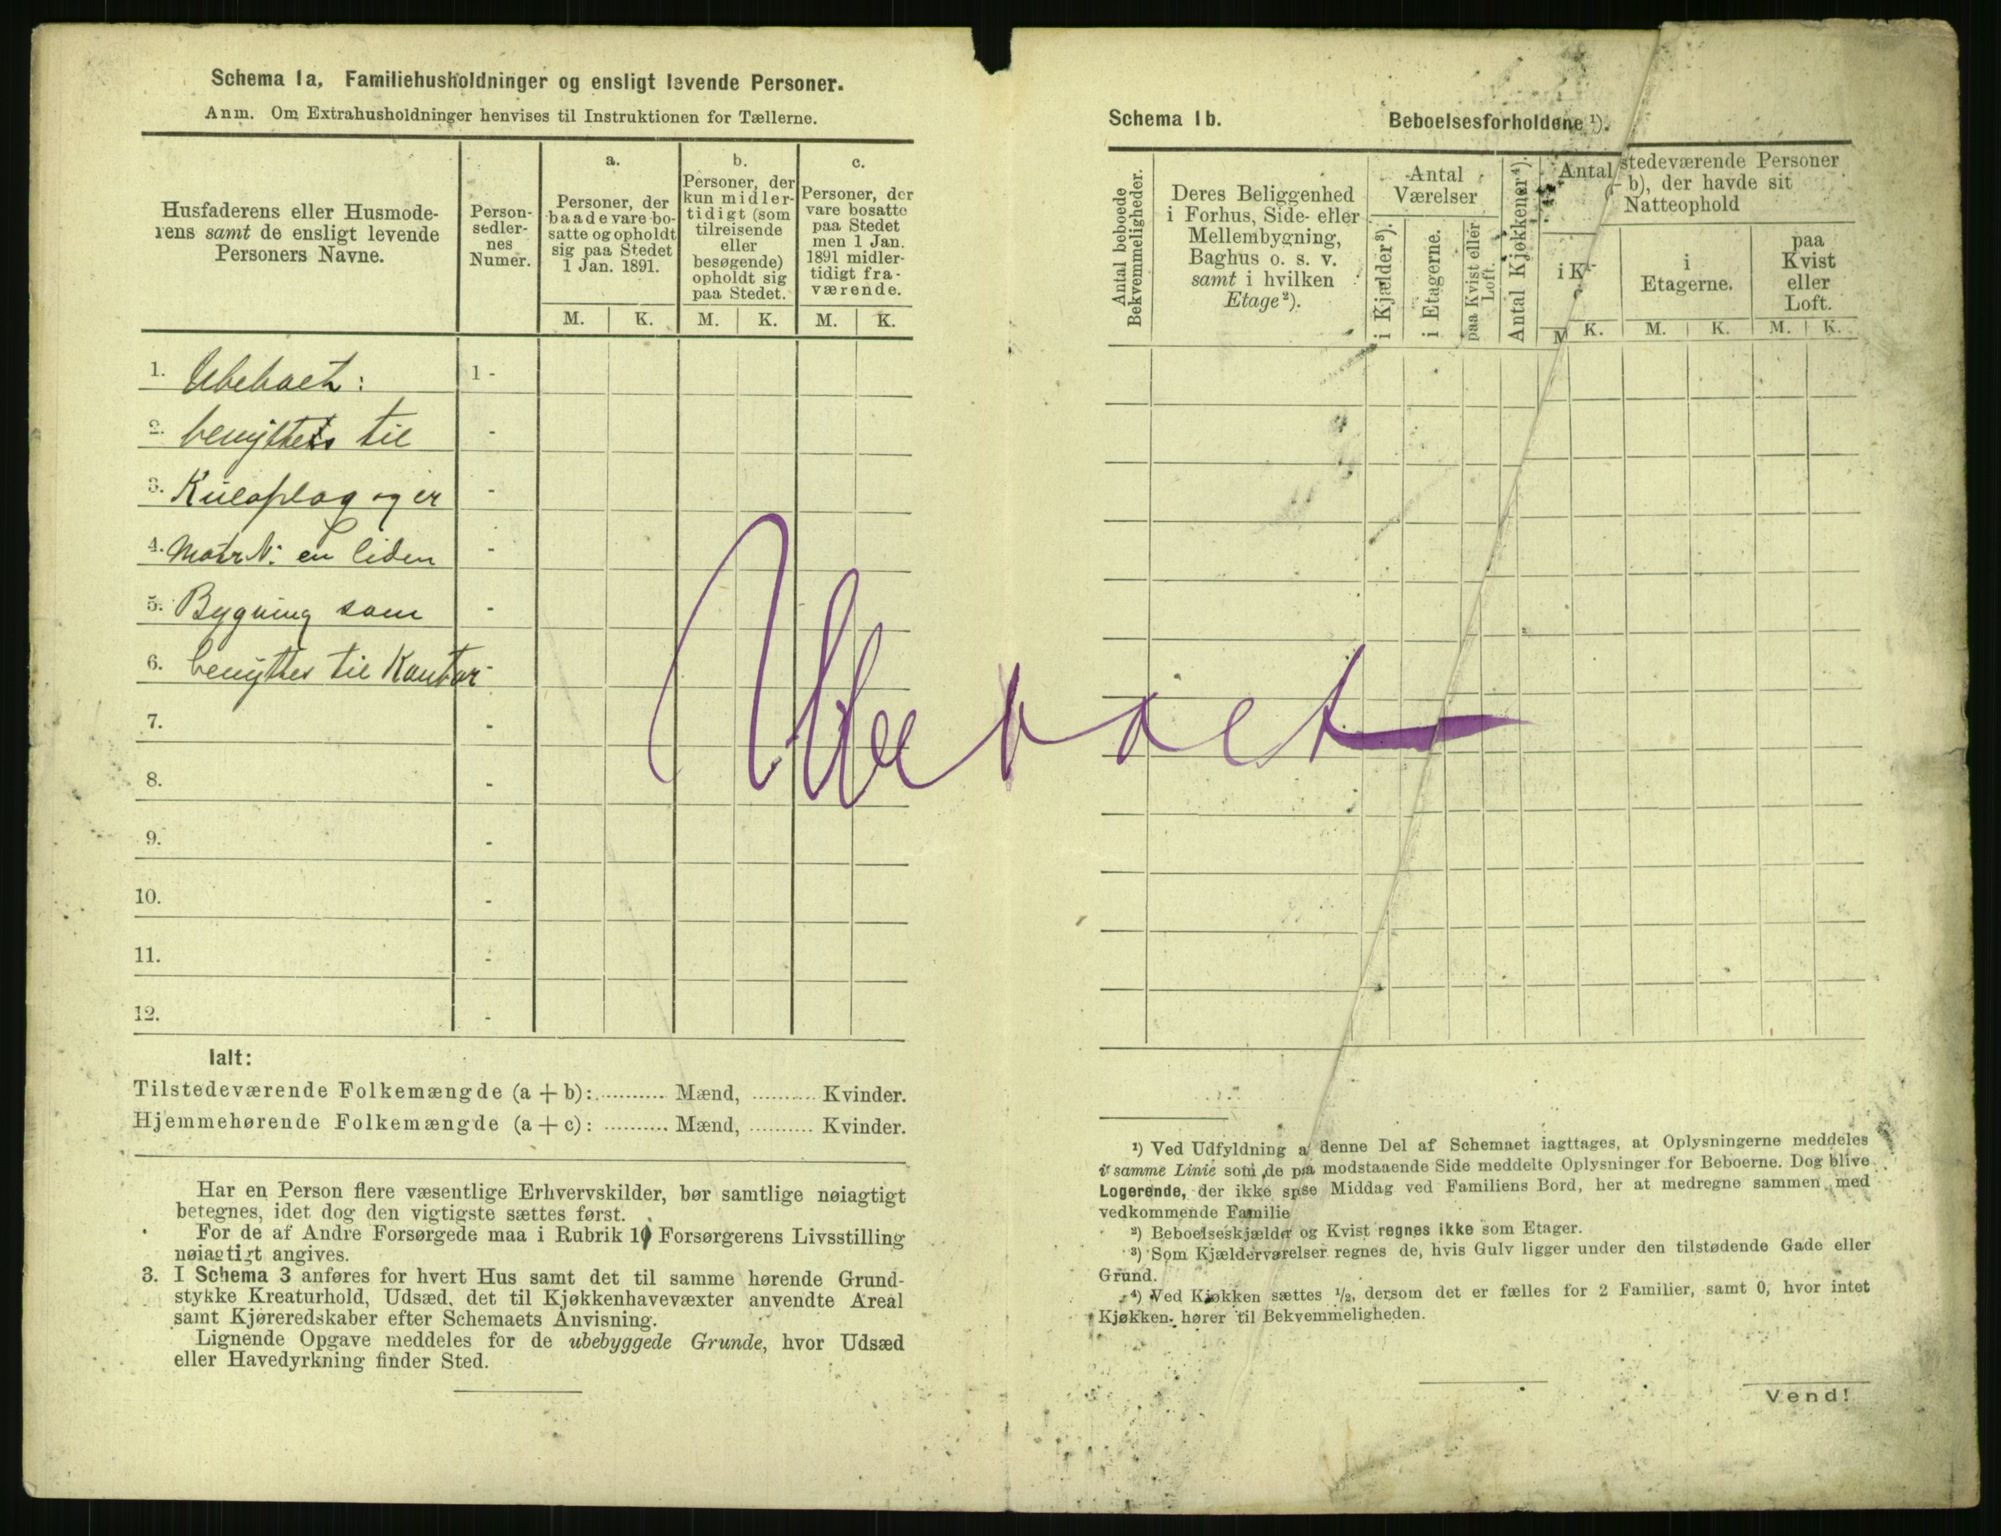 Schema 1a. Familiehusholdninger og ensligt levende Personer.
Anm. Om Extrahusholdninger henvises til Instruktionen for Tællerne.
Husfaderens eller Husmode-
rens samt de ensligt levende
Personers Navne.
Person-
sedler-
nes
Numer.
a.
Personer, der
baade vare bo-
satte og opholdt
sig paa Stedet
1 Jan. 1891.
b.
Personer, der
kun midler-
tidigt (som
tilreisende
eller
besøgende)
opholdt sig
paa Stedet.
c.
Personer, der
vare bosatte
paa Stedet
men 1 Jan.
1891 midler-
tidigt fra-
værende.
M. K. M. K. M. K.
1. Ubeboet: 1 -
2. benyttes til -
3. Kuloplag og er -
4. Matr N: en liden -
5. Bygning som -
6. benyttes til Kontor -
7. -
8. -
9. -
10. -
11. -
12. -
Ubeboet
Ialt:
Tilstedeværende Folkemængde (a + b): .......... Mænd, .......... Kvinder.
Hjemmehørende Folkemængde (a + c): .......... Mænd, .......... Kvinder.
Har en Person flere væsentlige Erhvervskilder, bør samtlige nøiagtigt
betegnes, idet dog den vigtigste sættes først.
For de af Andre Forsørgede maa i Rubrik 10 Forsørgerens Livsstilling
nøiagtigt angives.
3. I Schema 3 anføres for hvert Hus samt det til samme hørende Grund-
stykke Kreaturhold, Udsæd, det til Kjøkkenhavevæxter anvendte Areal
samt Kjøreredskaber efter Schemaets Anvisning.
Lignende Opgave meddeles for de ubebyggede Grunde, hvor Udsæd
eller Havedyrkning finder Sted.
Schema 1b. Beboelsesforholdene ¹).
Antal beboede
Bekvemmeligheder.
Deres Beliggenhed
i Forhus, Side- eller
Mellembygning,
Baghus o. s. v.
samt i hvilken
Etage²).
Antal
Værelser
i Kjælder³).
i Etagerne.
paa Kvist eller
Loft.
Antal Kjøkkener⁴).
Antal stedeværende Personer
b), der havde sit
Natteophold
i K
i
Etagerne.
paa
Kvist
eller
Loft.
M K. M. K. M. K.
¹) Ved Udfyldning a denne Del af Schemaet iagttages, at Oplysningerne meddeles
i samme Linie som de paa modstaaende Side meddelte Oplysninger for Beboerne. Dog blive
Logerende, der ikke spise Middag ved Familiens Bord, her at medregne sammen med
vedkommende Familie
²) Beboelseskjælder og Kvist regnes ikke som Etager.
³) Som Kjælderværelser regnes de, hvis Gulv ligger under den tilstødende Gade eller
Grund.
⁴) Ved Kjøkken sættes ¹/₂, dersom det er fælles for 2 Familier, samt 0, hvor intet
Kjøkken hører til Bekvemmeligheden.
Vend!